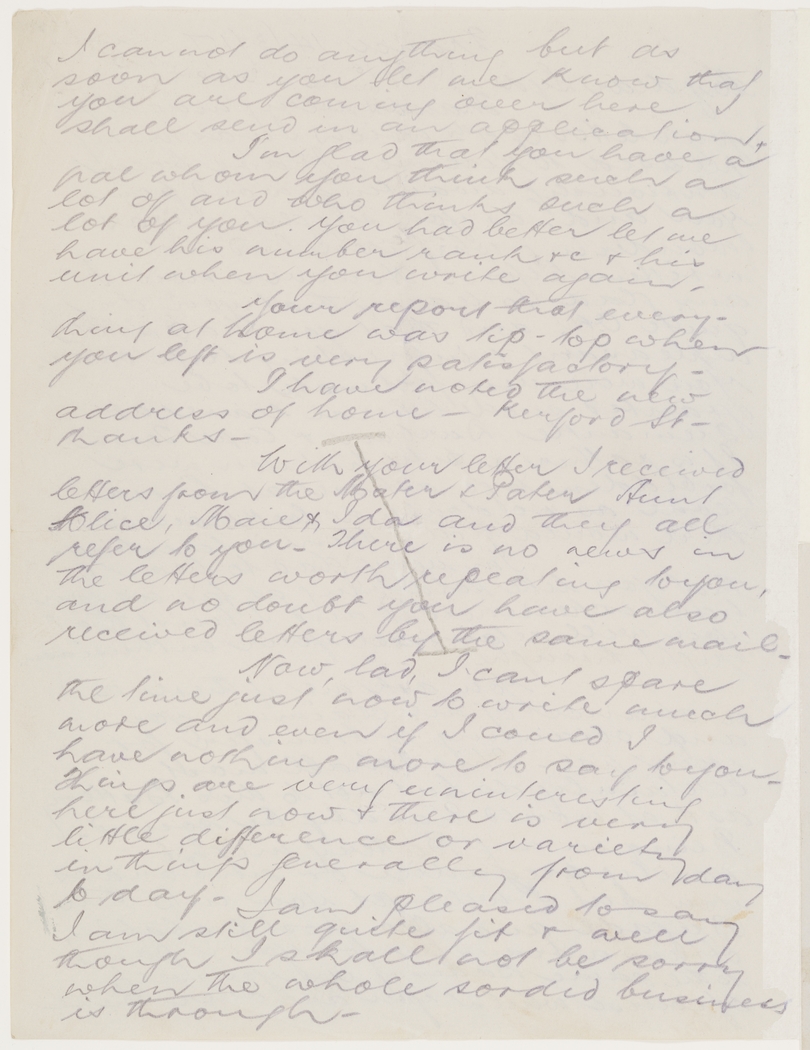 I cannot do anything but as
soon as you let me know that
you are coming over here I
shall send in an application,
I'm glad that you have a
pal whom you think such a
lot of and who thinks such a
lot of you. You had better let me
have his number rank &c & his
unit when you write again.
Your report that every-
thing at home was tip-top when
you left is very satisfactory-
I have noted the new
address of home - Kerford St-
thanks-
With your letter I received
letters from the Mater & Pater Aunt
Alice, Maie & Ida and they all
refer to you- There is no news in
the letters worth repeating to you,
and no doubt you have also
received letters by the same mail-
Now, lad, I cant spare
the time just now to write much
more and even if I could I
have nothing more to say to you-
Things are very uninteresting
here just now & there is very
little difference or variety
in things generally from day
to day- I am pleased to say
I am still quite fit & well
though I shall not be sorry
when the whole sordid business
is through-